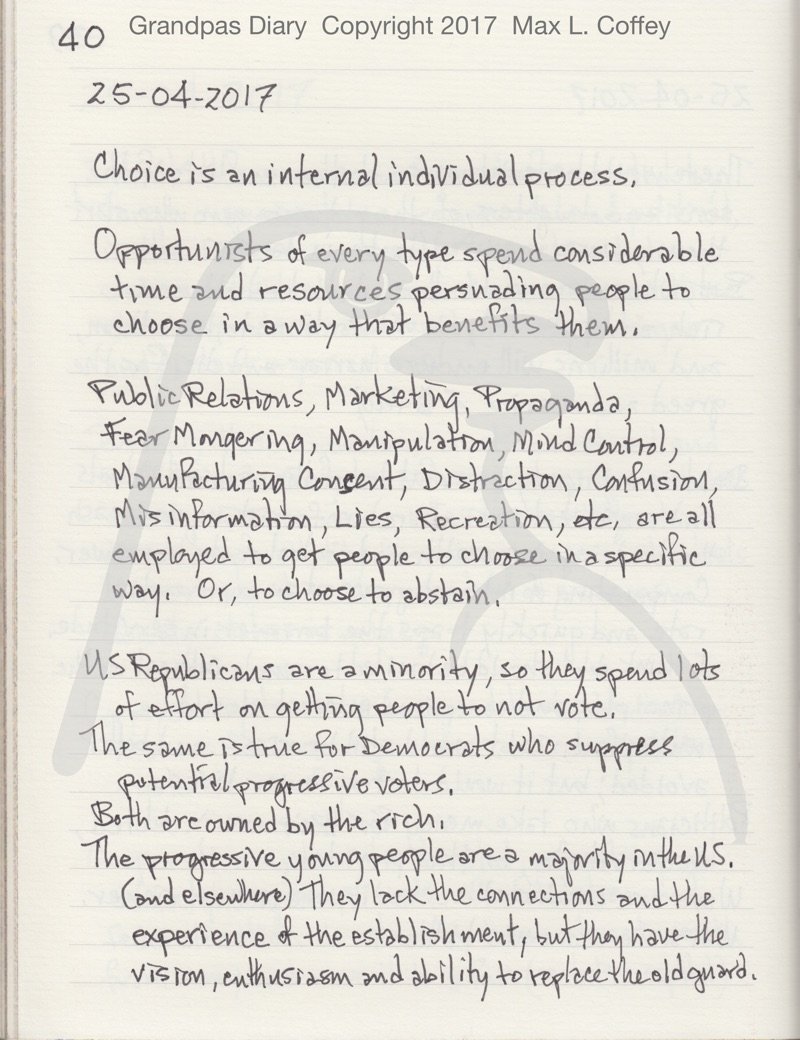 40 Grandpas Diary Copyright 2017 Max L. Coffey
25-04-2017
Choice is an internal individual process.
Opportunists of every type spend considerable
time and resources persuading people to
choose in a way that benefits them.
Public Relations, Marketing, Propaganda,
Fear Mongering, Manipulation, Mind Control,
Manufacturing Consent, Distraction, Confusion,
Misinformation, Lies, Recreation, etc, are all
employed to get people to choose in a specific
way. Or, to choose to abstain.
US Republicans are a minority, so they spend lots
of effort on getting people to not vote.
The same is true for Democrats who suppress
potential progressive voters.
Both are owned by the rich.
The progressive young people are a majority in the US.
(and elsewhere) They lack the connections and the
experience of the establishment, but they have the
vision, enthusiasm and ability to replace the old guard.